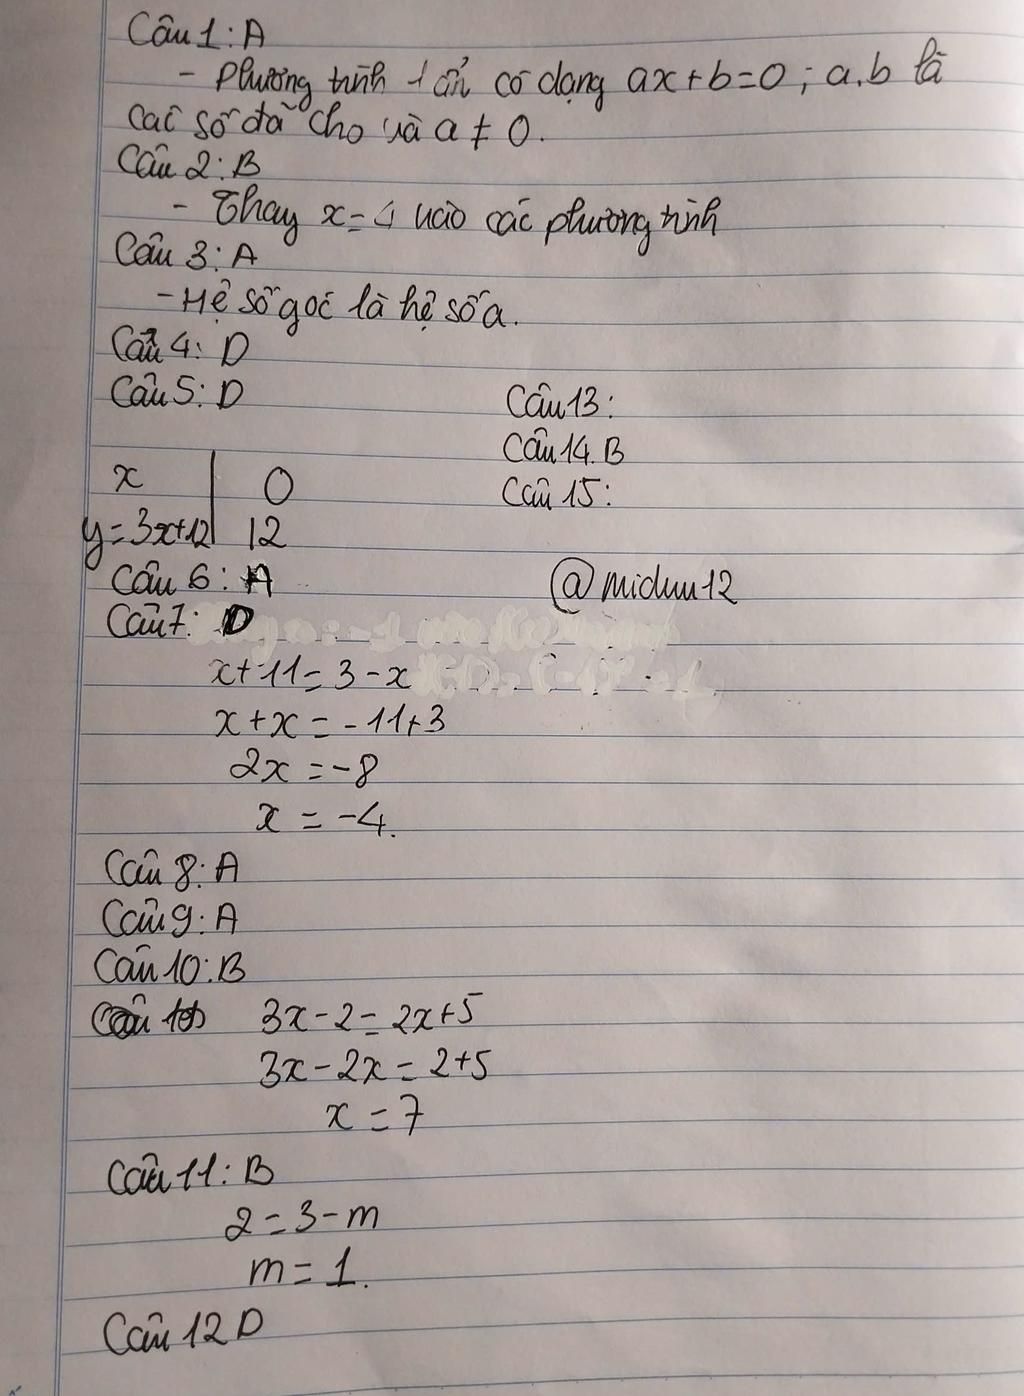 Câu 1: A
- Phương trình 1 ẩn có dạng ax+b=0; a,b là
các số đã cho và a ≠ 0.
Câu 2: B
- Thay x=4 vào các phương trình
Câu 3: A
- Hệ số góc là hệ số a.
Câu 4: D
Câu 5: D
x | 0
y=3x+12 | 12
Câu 6: A
Câu 7: D
x+11=3-x
x+x=-11+3
2x=-8
x=-4.
Câu 8: A
Câu 9: A
Câu 10: B
3x-2=2x+5
3x-2x=2+5
x=7
Câu 11: B
2=3-m
m=1.
Câu 12 D
Câu 13:
Câu 14. B
Câu 15: